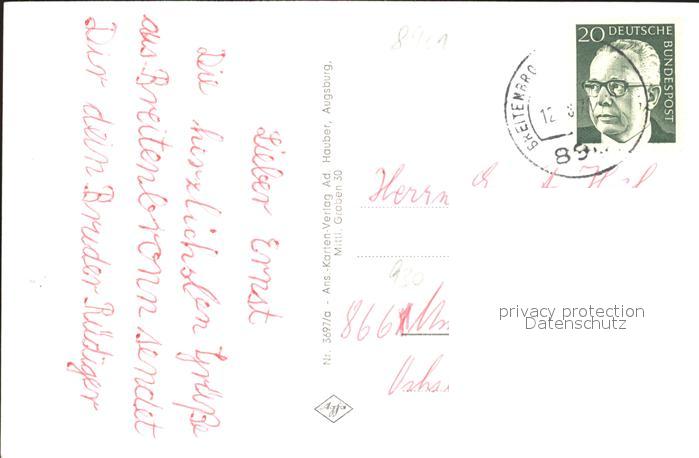 Lieber Ernst
Die herzlichsten Grüße
aus Breitenbronn sendet
Dir dein Bruder Rüdiger
Nr. 3697/a - Ans.-Karten-Verlag Ad. Hauber, Augsburg,
Mittl. Graben 30
Agfa
8901
20 DEUTSCHE
BUNDESPOST
BREITENBRO
12
89
Herrn
930
8661
privacy protection
Datenschutz